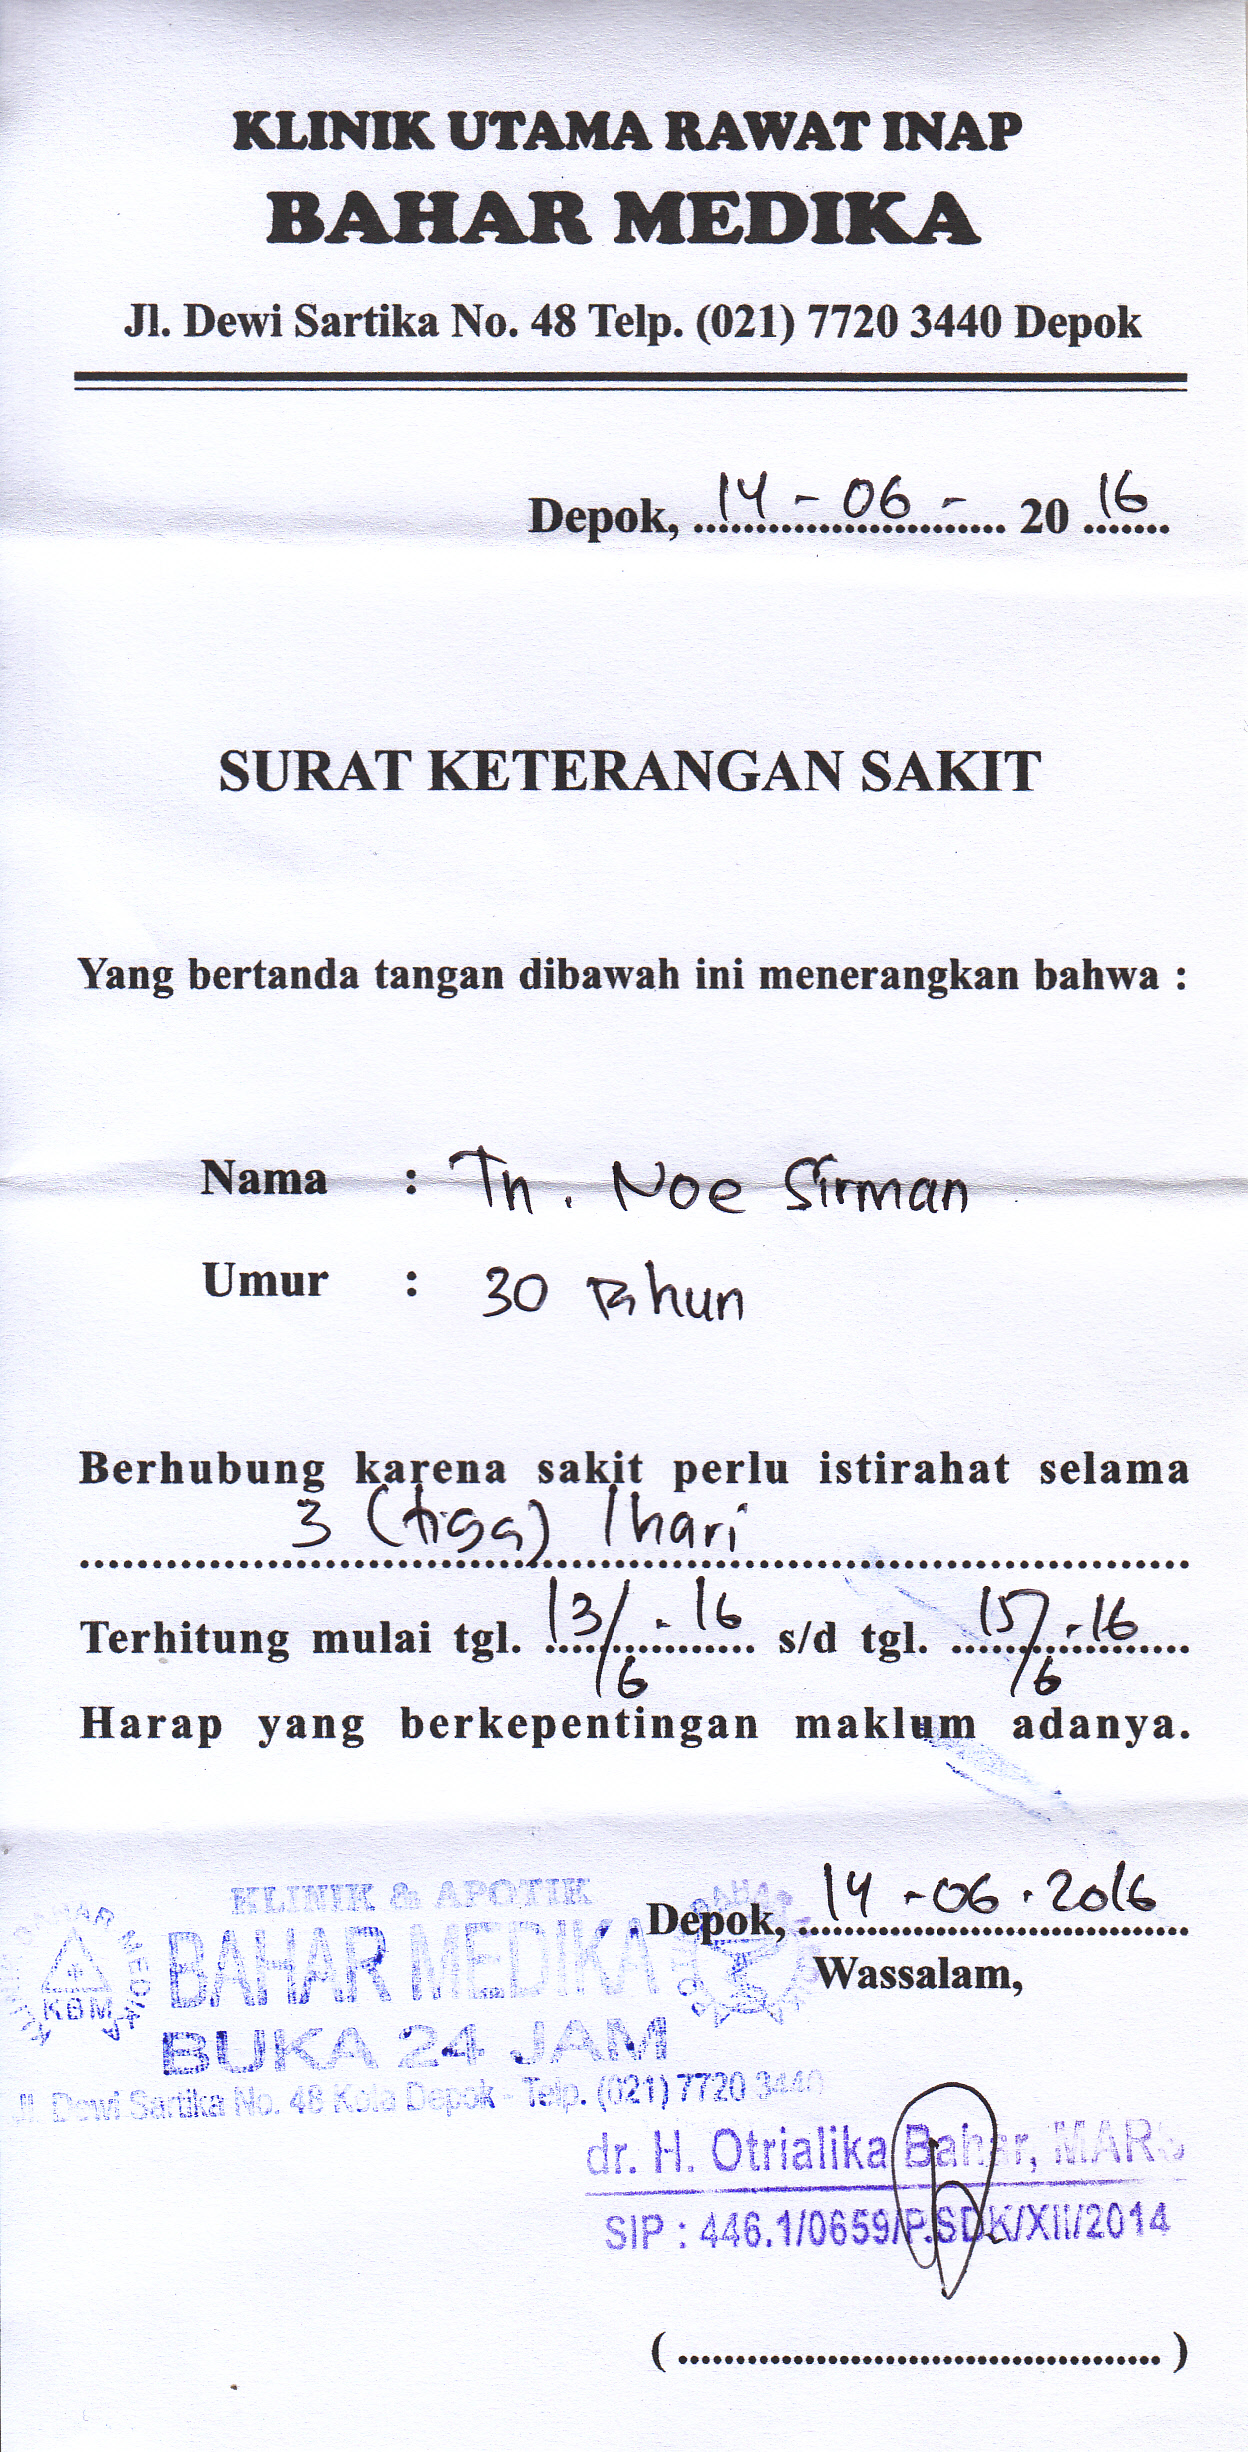 KLINIK UTAMA RAWAT INAP
BAHAR MEDIKA
Jl. Dewi Sartika No. 48 Telp. (021) 7720 3440 Depok
Depok, 14 - 06 - 20 16
SURAT KETERANGAN SAKIT
Yang bertanda tangan dibawah ini menerangkan bahwa :
Nama : Tn. Noe Sirman
Umur : 30 Tahun
Berhubung karena sakit perlu istirahat selama
3 (tiga) hari
Terhitung mulai tgl. 13/6 - 16 s/d tgl. 15/6 - 16
Harap yang berkepentingan maklum adanya.
Depok, 14 - 06 - 2016
Wassalam,
KLINIK & APOTIK
BAHAR MEDIKA
KBM
BUKA 24 JAM
Jl. Dewi Sartika No. 48 Kota Depok - Telp. (021) 7720 3440
dr. H. Otrialika Bahar, MARS
SIP : 446.1/0659/P.SDK/XII/2014
(........................................)